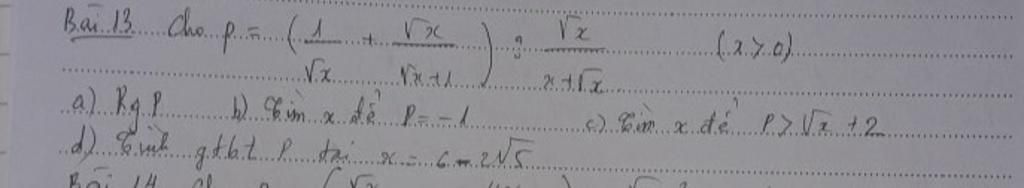 Bài 13 Cho P = (1/√x + √x/(√x+1)) : √x/(x+√x) (x>0)
a) Rg P b) Tìm x để P = -1 c) Tìm x để P > √x + 2
d) Tính gtbt P tại x = 6 - 2√5
Bài 14